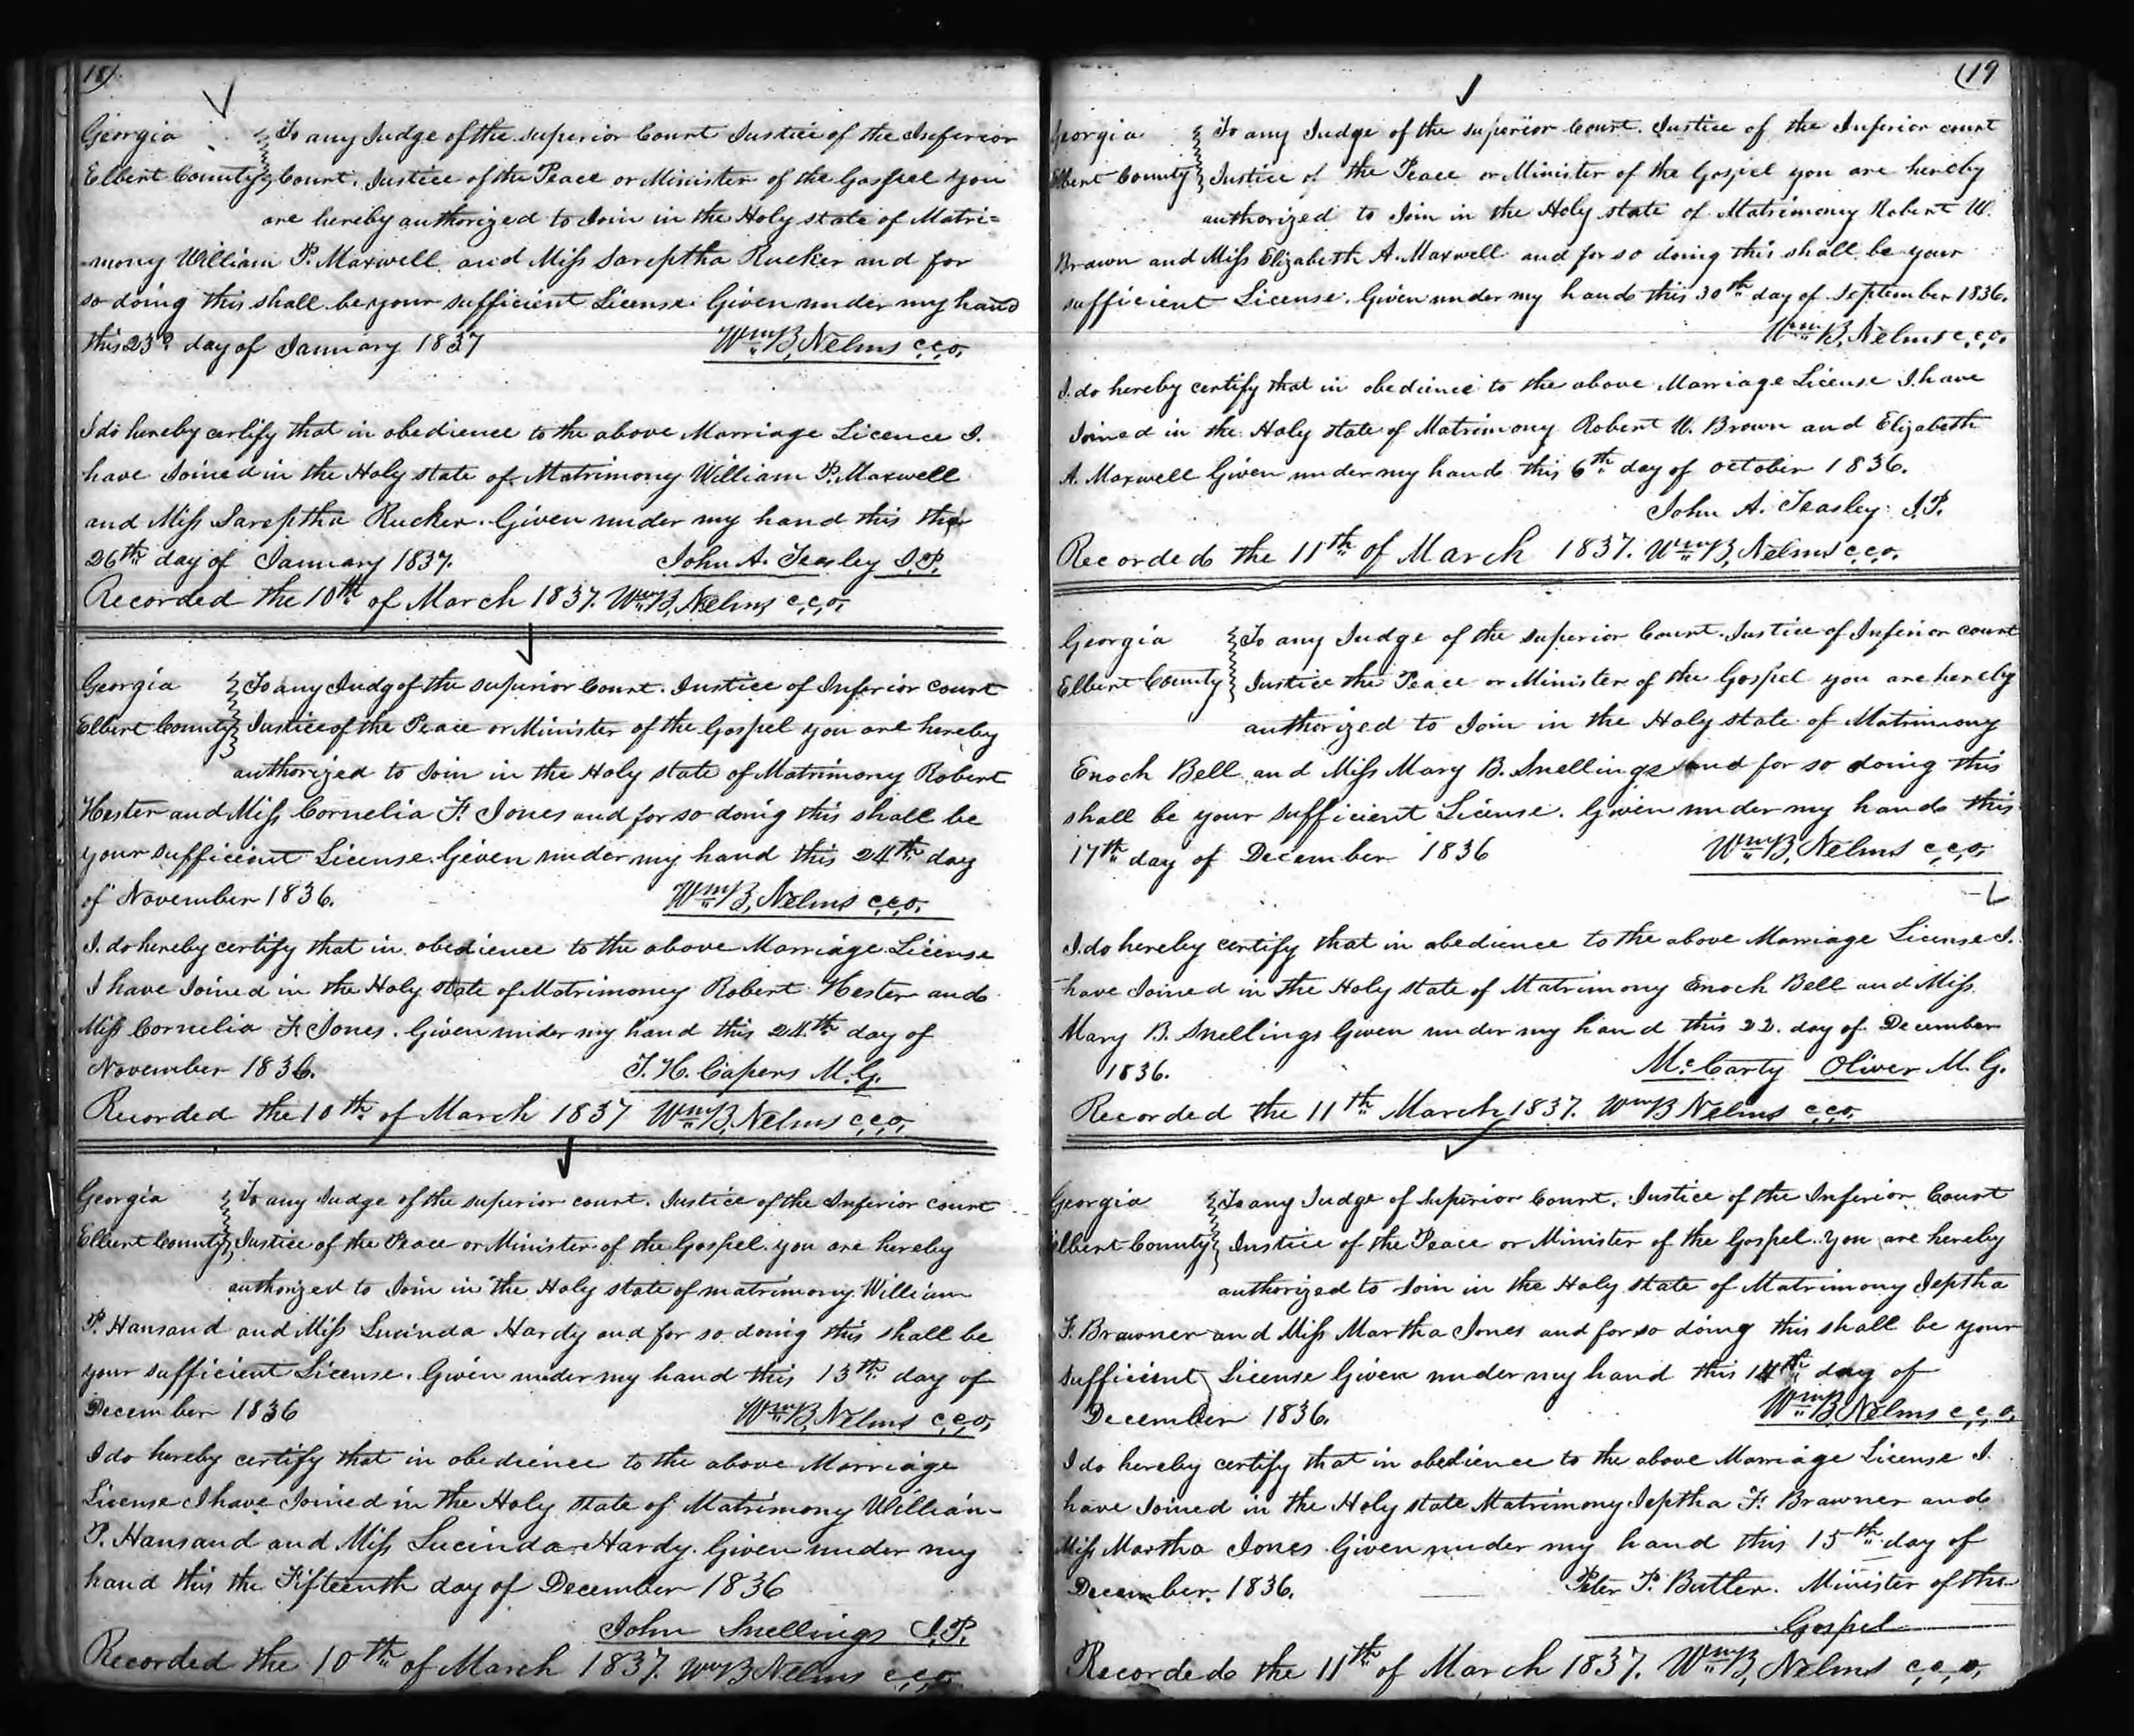 18)
Georgia To any Judge of the superior Court Justice of the Inferior
Elbert County Court. Justice of the Peace or Minister of the Gospel you
are hereby authorized to Join in the Holy state of Matri=
=mony William P. Maxwell and Miss Sareptha Rucker and for
so doing this shall be your sufficient License. Given under my hand
this 23d day of January 1837 Wm B, Nelms c,c,o,
I do hereby certify that in obedience to the above Marriage Licence I.
have Joined in the Holy state of Matrimony William P. Maxwell
and Miss Sareptha Rucker. Given under my hand this the
26th day of January 1837. John A. Teasley J.P.
Recorded the 10th of March 1837. Wm B, Nelms c,c,o,
Georgia To any Judg of the superior Court. Justice of Inferior court
Elbert County Justice of the Peace or Minister of the Gospel you are hereby
authorized to Join in the Holy state of Matrimony Robert
Hester and Miss Cornelia F. Jones and for so doing this shall be
your sufficient License. Given under my hand this 24th day
of November 1836. Wm B, Nelms c,c,o,
I. do hereby certify that in obedience to the above Marriage License
I have Joined in the Holy state of Matrimony Robert Hester and
Miss Cornelia F. Jones. Given under my hand this 24th day of
November 1836. T. H. Capers M.G.
Recorded the 10th of March 1837 Wm B, Nelms c,c,o,
Georgia To any Judge of the superior court. Justice of the Inferior court
Elbert County Justice of the Peace or Minister of the Gospel you are hereby
authorized to Join in the Holy state of matrimony William
P. Hansand and Miss Lucinda Hardy and for so doing this shall be
your sufficient License. Given under my hand this 13th day of
December 1836 Wm B, Nelms c,c,o,
I do hereby certify that in obedience to the above Marriage
License I have Joined in the Holy state of Matrimony William
P. Hansand and Miss Lucinda Hardy. Given under my
hand this the Fifteenth day of December 1836
John Snellings J.P.
Recorded the 10th of March 1837. Wm B Nelms c,c,o,
(19
Georgia To any Judge of the superior court. Justice of the Inferior court
Elbert County Justice of the Peace or Minister of the Gospel you are hereby
authorized to Join in the Holy state of Matrimony Robert W.
Brawn and Miss Elizabeth A. Maxwell and for so doing this shall be your
sufficient License. Given under my hand this 30th day of September 1836.
Wm B, Nelms c,c,o,
I. do hereby certify that in obedience to the above Marriage License I. have
Joined in the Holy state of Matrimony Robert W. Brown and Elizabeth
A. Maxwell Given under my hand this 6th day of october 1836.
John A. Teasley J.P.
Recorded the 11th of March 1837. Wm B, Nelms c,c,o,
Georgia To any Judge of the superior Court. Justice of Inferior court
Elbert County Justice the Peace or Minister of the Gospel you are hereby
authorized to Join in the Holy state of Matrimony
Enoch Bell and Miss Mary B. Snellings and for so doing this
shall be your sufficient License. Given under my hand this
17th day of December 1836 Wm B, Nelms c,c,o,
I. do hereby certify that in obedience to the above Marriage License I.
have Joined in the Holy state of Matrimony Enoch Bell and Miss
Mary B. Snellings Given under my hand this 22. day of December
1836. Mc Carty Oliver M. G.
Recorded the 11th March 1837. Wm B Nelms c,c,o,
Georgia To any Judge of Superior Court. Justice of the Inferior Court
Elbert County Justice of the Peace or Minister of the Gospel. you are hereby
authorized to Join in the Holy state of Matrimony Jeptha
F. Brawner and Miss Martha Jones and for so doing this shall be your
sufficient License Given under my hand this 14th day of
December 1836. Wm B Nelms c,c,o,
I do hereby certify that in obedience to the above Marriage License I.
have Joined in the Holy state Matrimony Jeptha F. Brawner and
Miss Martha Jones Given under my hand this 15th day of
December. 1836. Peter P. Butler. Minister of the
Gospel
Recorded the 11th of March 1837. Wm B, Nelms c,c,o,